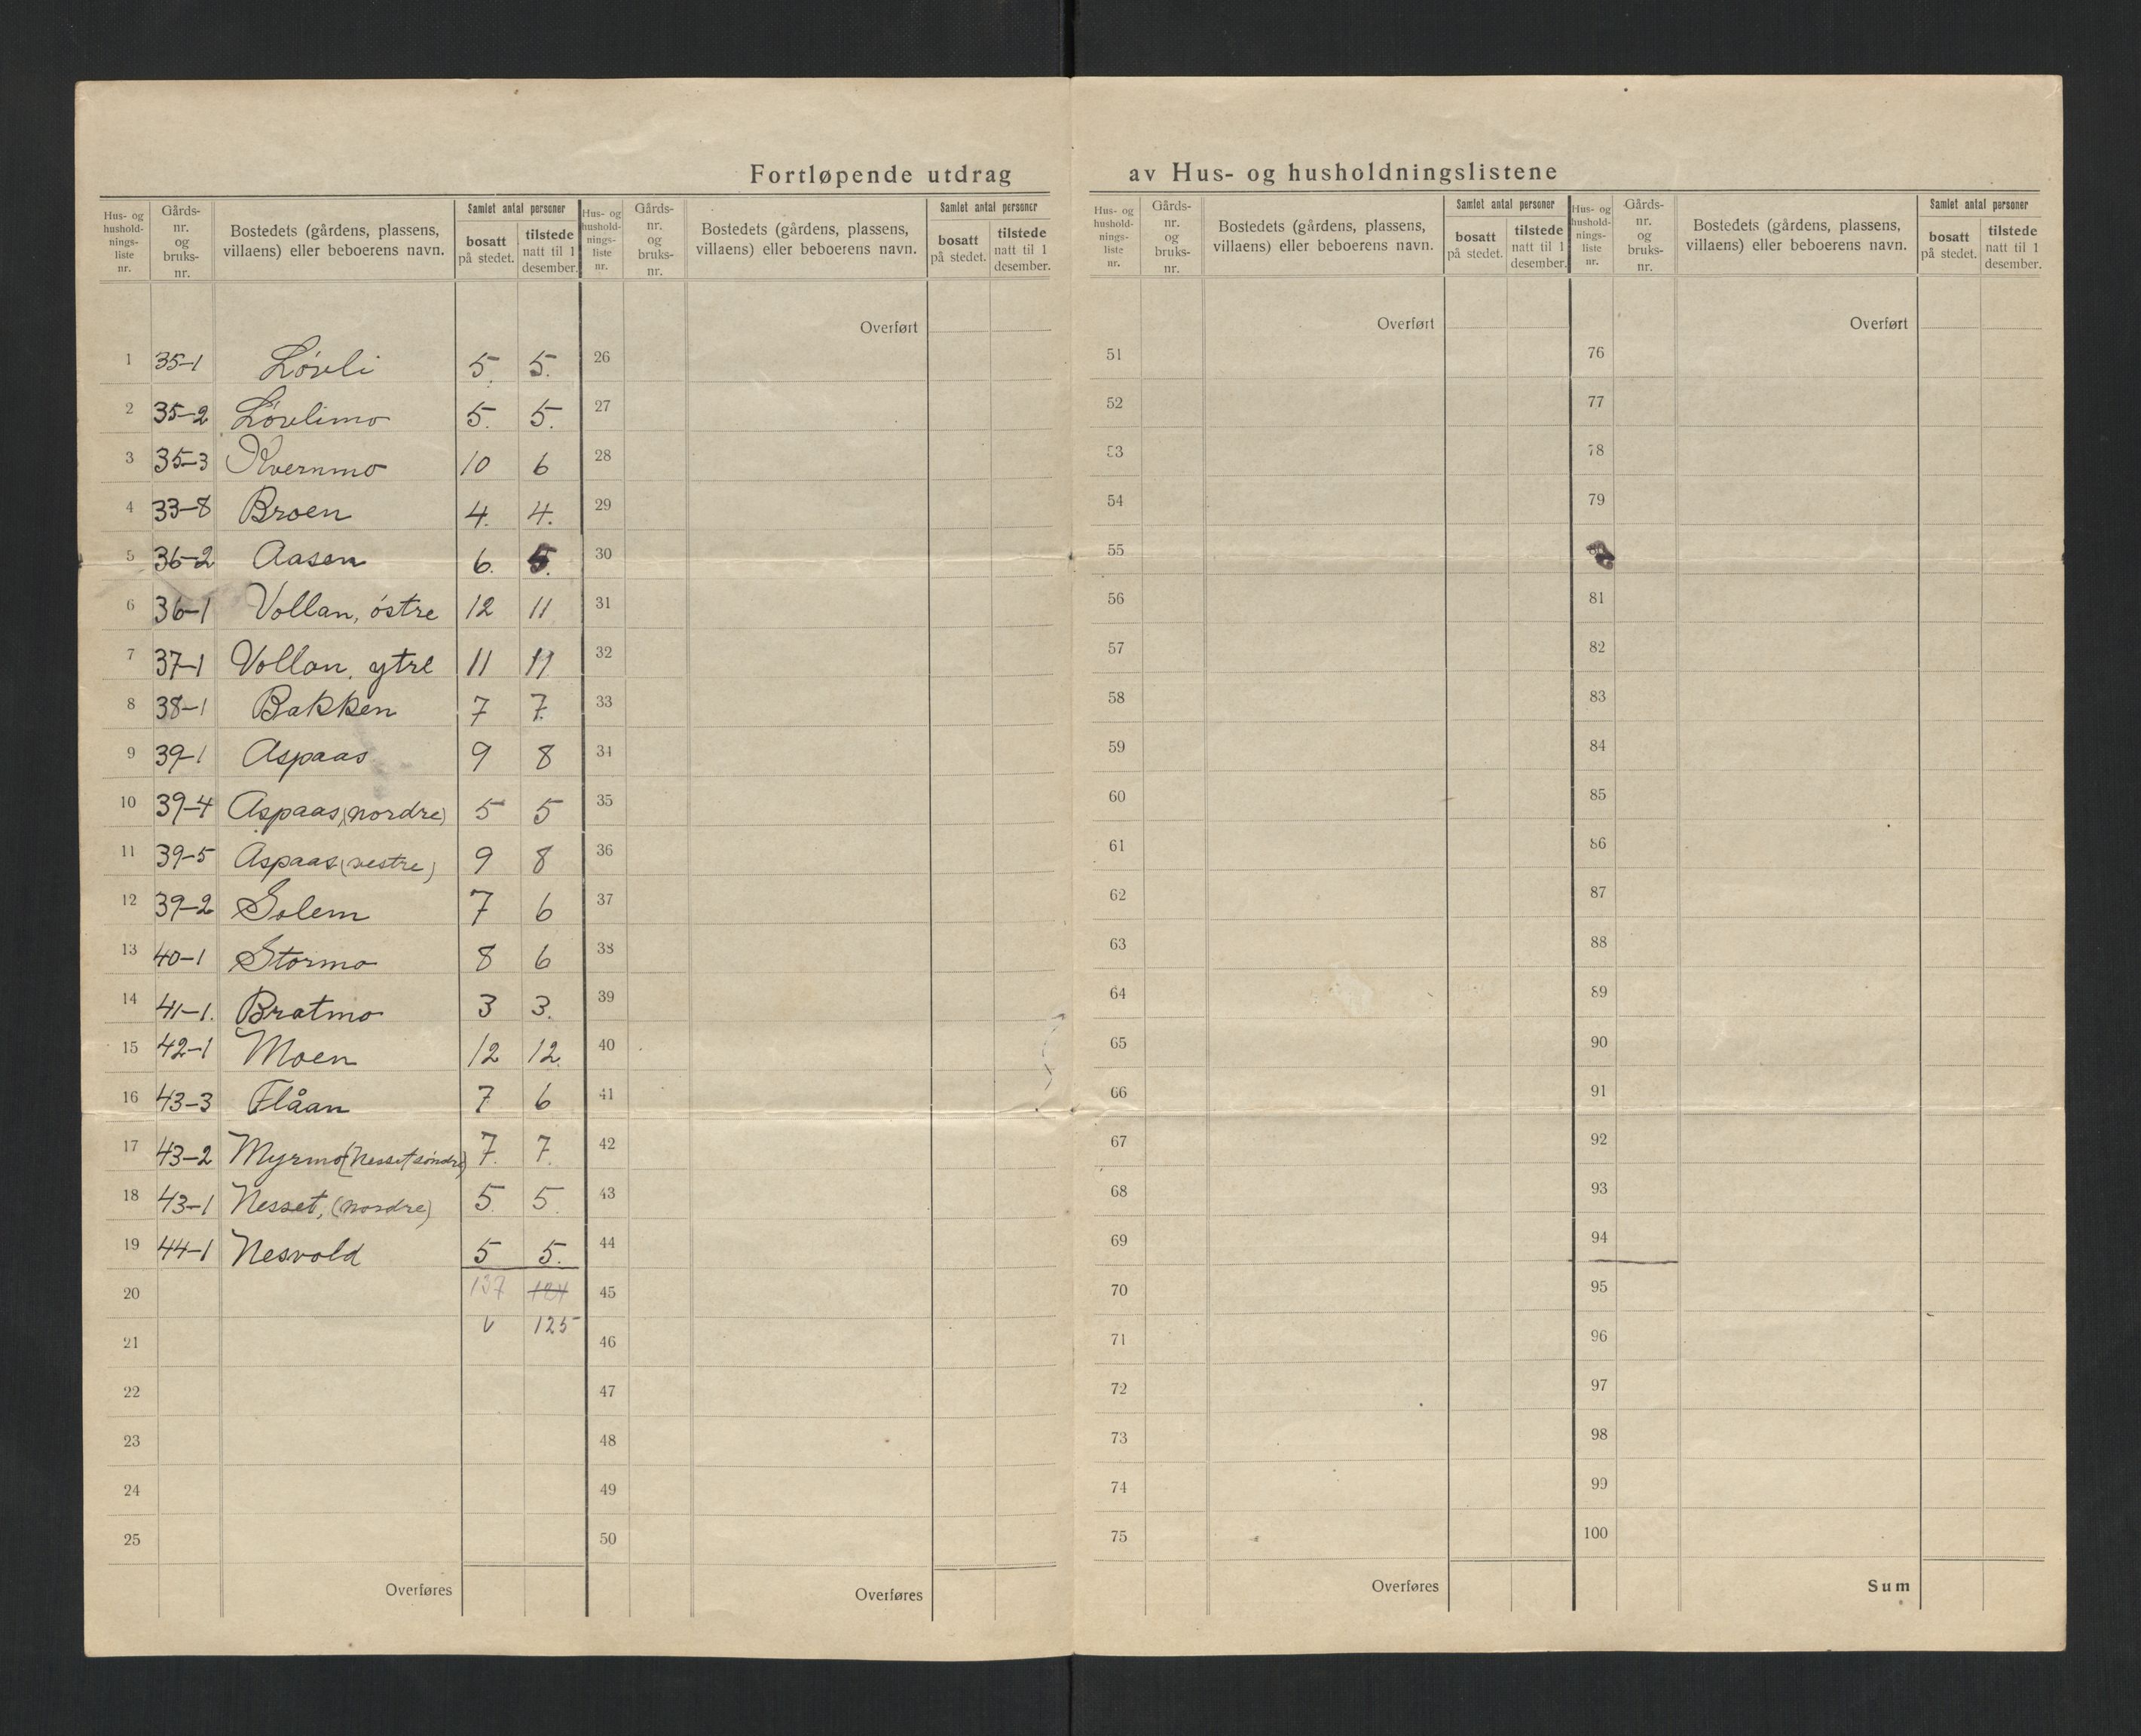 Fortløpende utdrag av Hus- og husholdningslistene
Hus- og hushold-nings-liste nr. Gårds-nr. og bruks-nr. Bostedets (gårdens, plassens, villaens) eller beboerens navn. Samlet antal personer bosatt på stedet. tilstede natt til 1 desember.
Hus- og hushold-nings-liste nr. Gårds-nr. og bruks-nr. Bostedets (gårdens, plassens, villaens) eller beboerens navn. Samlet antal personer bosatt på stedet. tilstede natt til 1 desember.
Hus- og hushold-nings-liste nr. Gårds-nr. og bruks-nr. Bostedets (gårdens, plassens, villaens) eller beboerens navn. Samlet antal personer bosatt på stedet. tilstede natt til 1 desember.
Hus- og hushold-nings-liste nr. Gårds-nr. og bruks-nr. Bostedets (gårdens, plassens, villaens) eller beboerens navn. Samlet antal personer bosatt på stedet. tilstede natt til 1 desember.
Overført Overført Overført
1 35-1 Lövli 5. 5. 26 51 76
2 35-2 Lövlimo 5. 5. 27 52 77
3 35-3 Kvernmo 10 6 28 53 78
4 33-8 Broen 4. 4. 29 54 79
5 36-2 Aasen 6. 5. 30 55
6 36-1 Vollan, östre 12 11 31 56 81
7 37-1 Vollan, ytre 11 11 32 57 82
8 38-1 Bakken 7 7. 33 58 83
9 39-1 Aspaas 9 8 34 59 84
10 39-4 Aspaas, (nordre) 5 5 35 60 85
11 39-5 Aspaas (vestre) 9 8 36 61 86
12 39-2 Solem 7 6 37 62 87
13 40-1 Stormo 8 6 38 63 88
14 41-1. Bratmo 3 3. 39 64 89
15 42-1 Moen 12 12. 40 65 90
16 43-3 Flåan 7 6 41 66 91
17 43-2 Myrmo (Nesset söndre) 7. 7. 42 67 92
18 43-1 Nesset, (nordre) 5. 5. 43 68 93
19 44-1 Nesvold 5 5. 44 69 94
20 137 124 45 70 95
21 125 46 71 96
22 47 72 97
23 48 73 98
24 49 74 99
25 50 75 100
Overføres Overføres Overføres Sum